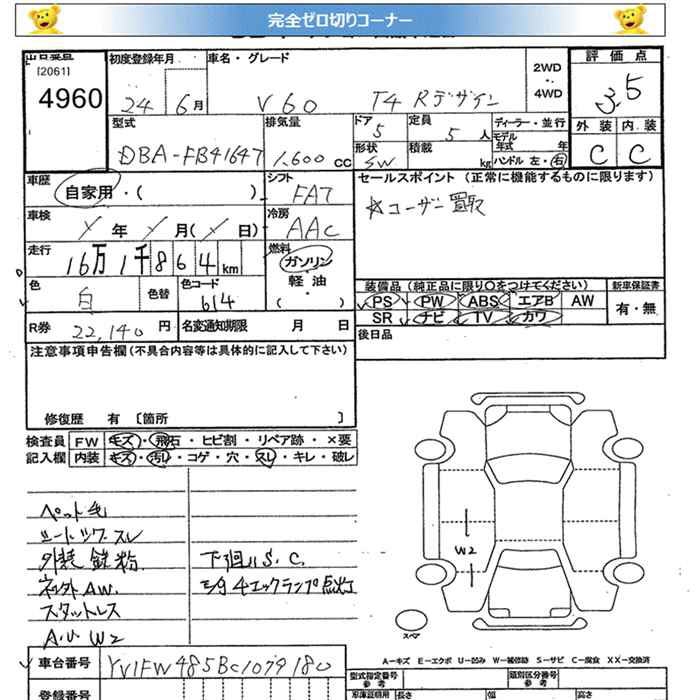 完全ゼロ切りコーナー
[2061]
4960
初度登録年月
24 6月
車名・グレード
V60 T4 Rデザイン
2WD
・
4WD
評価点
3.5
外装 内装
C C
型式
DBA-FB4164T
排気量
1,600 cc
ドア
5
定員
5 人
形状
SW
積載
kg
ディーラー・並行
モデル年式 年
ハンドル 左・右
車歴
自家用・( )
シフト
FAT
セールスポイント (正常に機能するものに限ります)
☆ユーザー買取
車検
年 月( 日)
冷房
AAC
走行
16万1千864km
燃料
ガソリン
軽・油
( )
色
白
色替
色コード
614
装備品 (純正品に限り〇をつけてください)
PS PW ABS エアB AW
SR ナビ TV カワ
新車保証書
有・無
R券 22,140 円
名変通知期限 月 日
後日品
注意事項申告欄 (不具合内容等は具体的に記入して下さい)
修復歴 有 [箇所 ]
検査員記入欄
FW キズ・飛石・ヒビ割・リペア跡・×要
内装 キズ・汚れ・コゲ・穴・スレ・キレ・破レ
ペット毛
シートツヤスレ
外装鉄粉
ネジ外AW.
スタットレス
A.U W2
下廻りS.C.
エンジンチェックランプ点灯
W2
スペア
A-キズ E-エクボ U-凹み W-補修跡 S-サビ C-腐食 XX-交換済
車台番号 YV1FW485BC1079180
登録番号
型式指定番号
参考
類別区分番号
参考
車庫証明用
長さ 幅 高さ